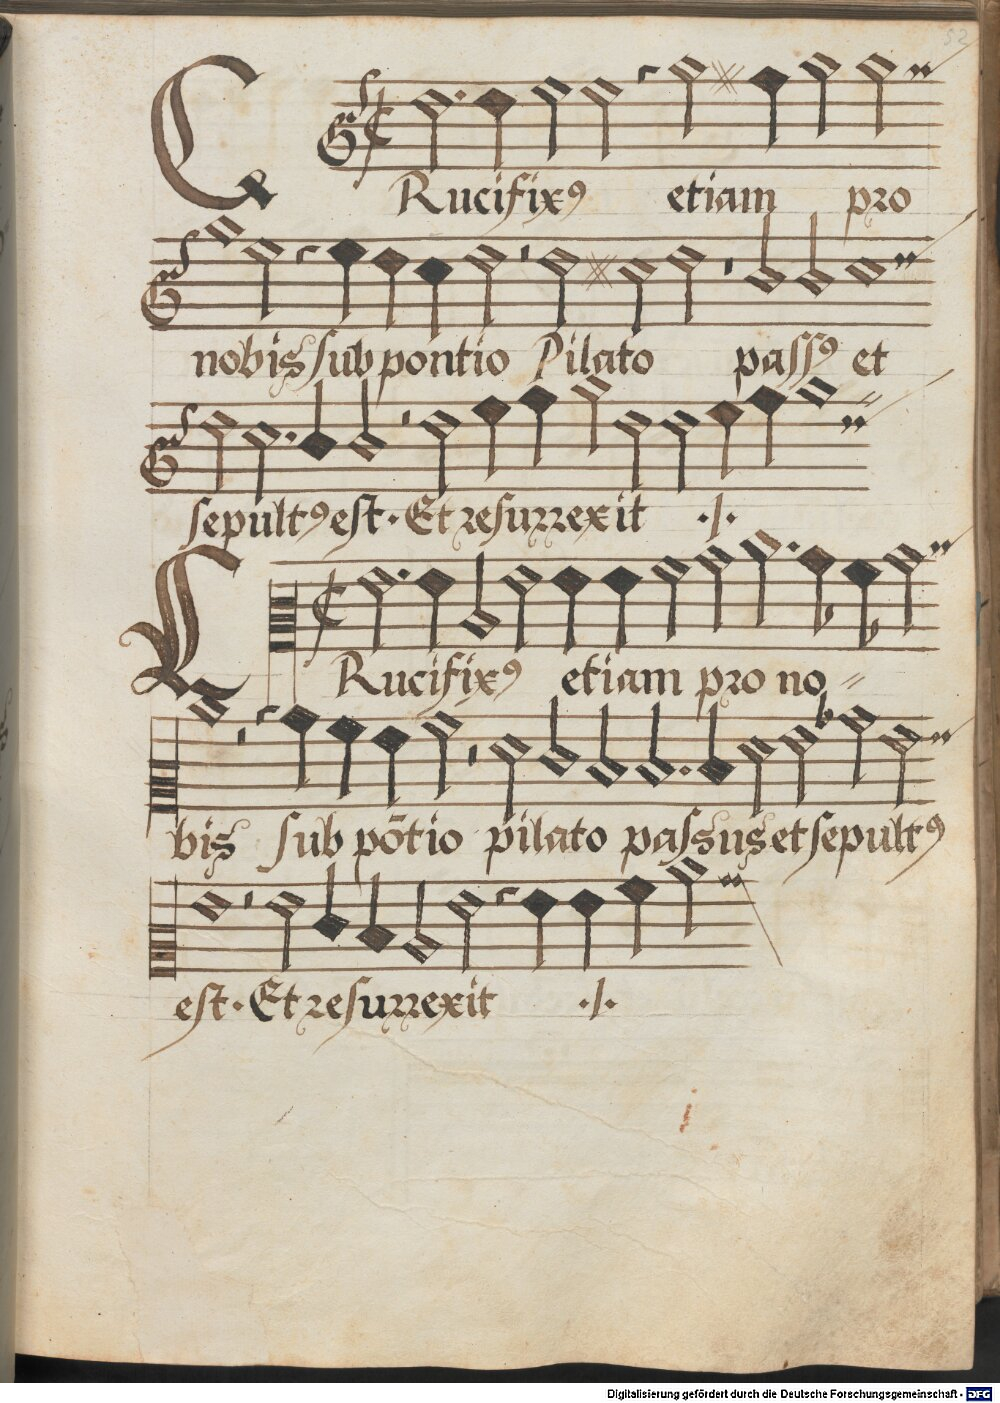 52
CRucifixꝯ etiam pro
nobis sub pontio Pilato passꝯ et
sepultꝯ est. Et resurrexit ./.
CRucifixꝯ etiam pro no=
bis sub põtio pilato passus et sepultꝯ
est. Et resurrexit ./.
Digitalisierung gefördert durch die Deutsche Forschungsgemeinschaft - DFG